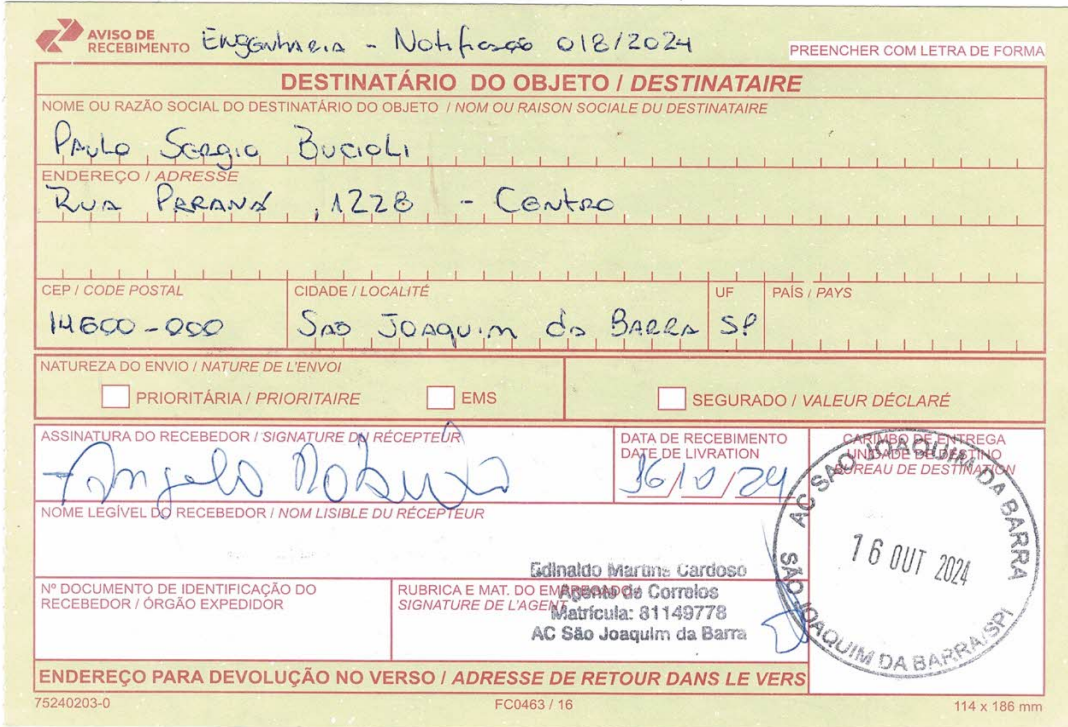 AVISO DE RECEBIMENTO Engenharia - Notificação 018/2024
PREENCHER COM LETRA DE FORMA
DESTINATÁRIO DO OBJETO / DESTINATAIRE
NOME OU RAZÃO SOCIAL DO DESTINATÁRIO DO OBJETO / NOM OU RAISON SOCIALE DU DESTINATAIRE
Paulo Sergio Bucioli
ENDEREÇO / ADRESSE
Rua Paraná, 1228 - Centro
CEP / CODE POSTAL CIDADE / LOCALITÉ UF PAÍS / PAYS
14600-000 São Joaquim da Barra SP
NATUREZA DO ENVIO / NATURE DE L'ENVOI
PRIORITÁRIA / PRIORITAIRE EMS SEGURADO / VALEUR DÉCLARÉ
ASSINATURA DO RECEBEDOR / SIGNATURE DU RÉCEPTEUR
Angela
DATA DE RECEBIMENTO
DATE DE LIVRATION
16/10/24
CARIMBO DE ENTREGA
UNIDADE DE DESTINO
BUREAU DE DESTINATION
AC SÃO JOAQUIM DA BARRA
16 OUT 2024
SÃO JOAQUIM DA BARRA/SP
NOME LEGÍVEL DO RECEBEDOR / NOM LISIBLE DU RÉCEPTEUR
Nº DOCUMENTO DE IDENTIFICAÇÃO DO
RECEBEDOR / ÓRGÃO EXPEDIDOR
RUBRICA E MAT. DO EMPREGADO
SIGNATURE DE L'AGENT
Edinaldo Martins Cardoso
Agente de Correios
Matrícula: 81149778
AC São Joaquim da Barra
ENDEREÇO PARA DEVOLUÇÃO NO VERSO / ADRESSE DE RETOUR DANS LE VERS
75240203-0 FC0463 / 16 114 x 186 mm